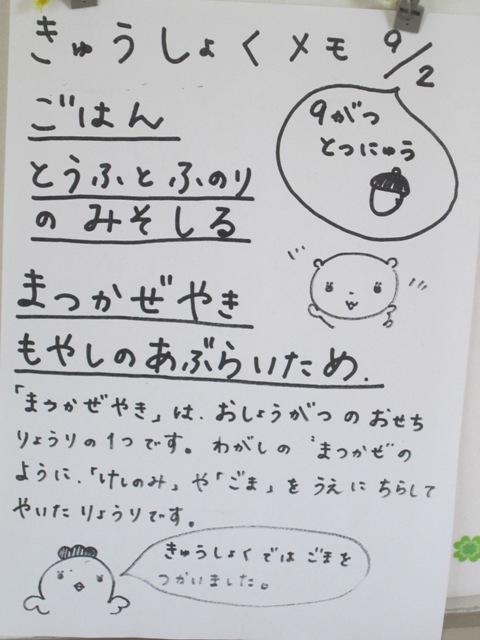 きゅうしょくメモ 9/2
9がつ
とつにゅう
ごはん
とうふとふのり
のみそしる
まつかぜやき
もやしのあぶらいため.
「まつかぜやき」は、おしょうがつのおせち
りょうりの1つです。わがしの〝まつかぜ〞の
ように、「けしのみ」や「ごま」をうえにちらして
やいたりょうりです。
きゅうしょくではごまを
つかいました。